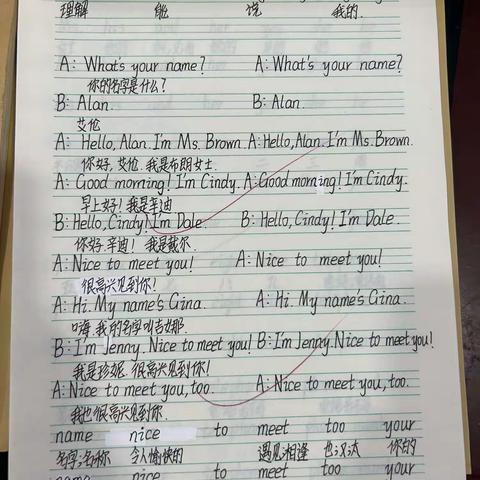 理解 能 说 我的
A: What's your name? A: What's your name?
你的名字是什么?
B: Alan. B: Alan.
艾伦
A: Hello, Alan. I'm Ms. Brown. A: Hello, Alan. I'm Ms. Brown.
你好,艾伦.我是布朗女士.
A: Good morning! I'm Cindy. A: Good morning! I'm Cindy.
早上好!我是辛迪
B: Hello, Cindy! I'm Dale. B: Hello, Cindy! I'm Dale.
你好,辛迪!我是戴尔.
A: Nice to meet you! A: Nice to meet you!
很高兴见到你!
A: Hi. My name's Gina. A: Hi. My name's Gina.
嗨,我的名字叫吉娜.
B: I'm Jenny. Nice to meet you! B: I'm Jenny. Nice to meet you!
我是珍妮.很高兴见到你!
A: Nice to meet you, too. A: Nice to meet you, too.
我也很高兴见到你.
name nice to meet too your
名字;名称 令人愉快的 遇见;相逢 也;又;太 你的
name nice to meet too your